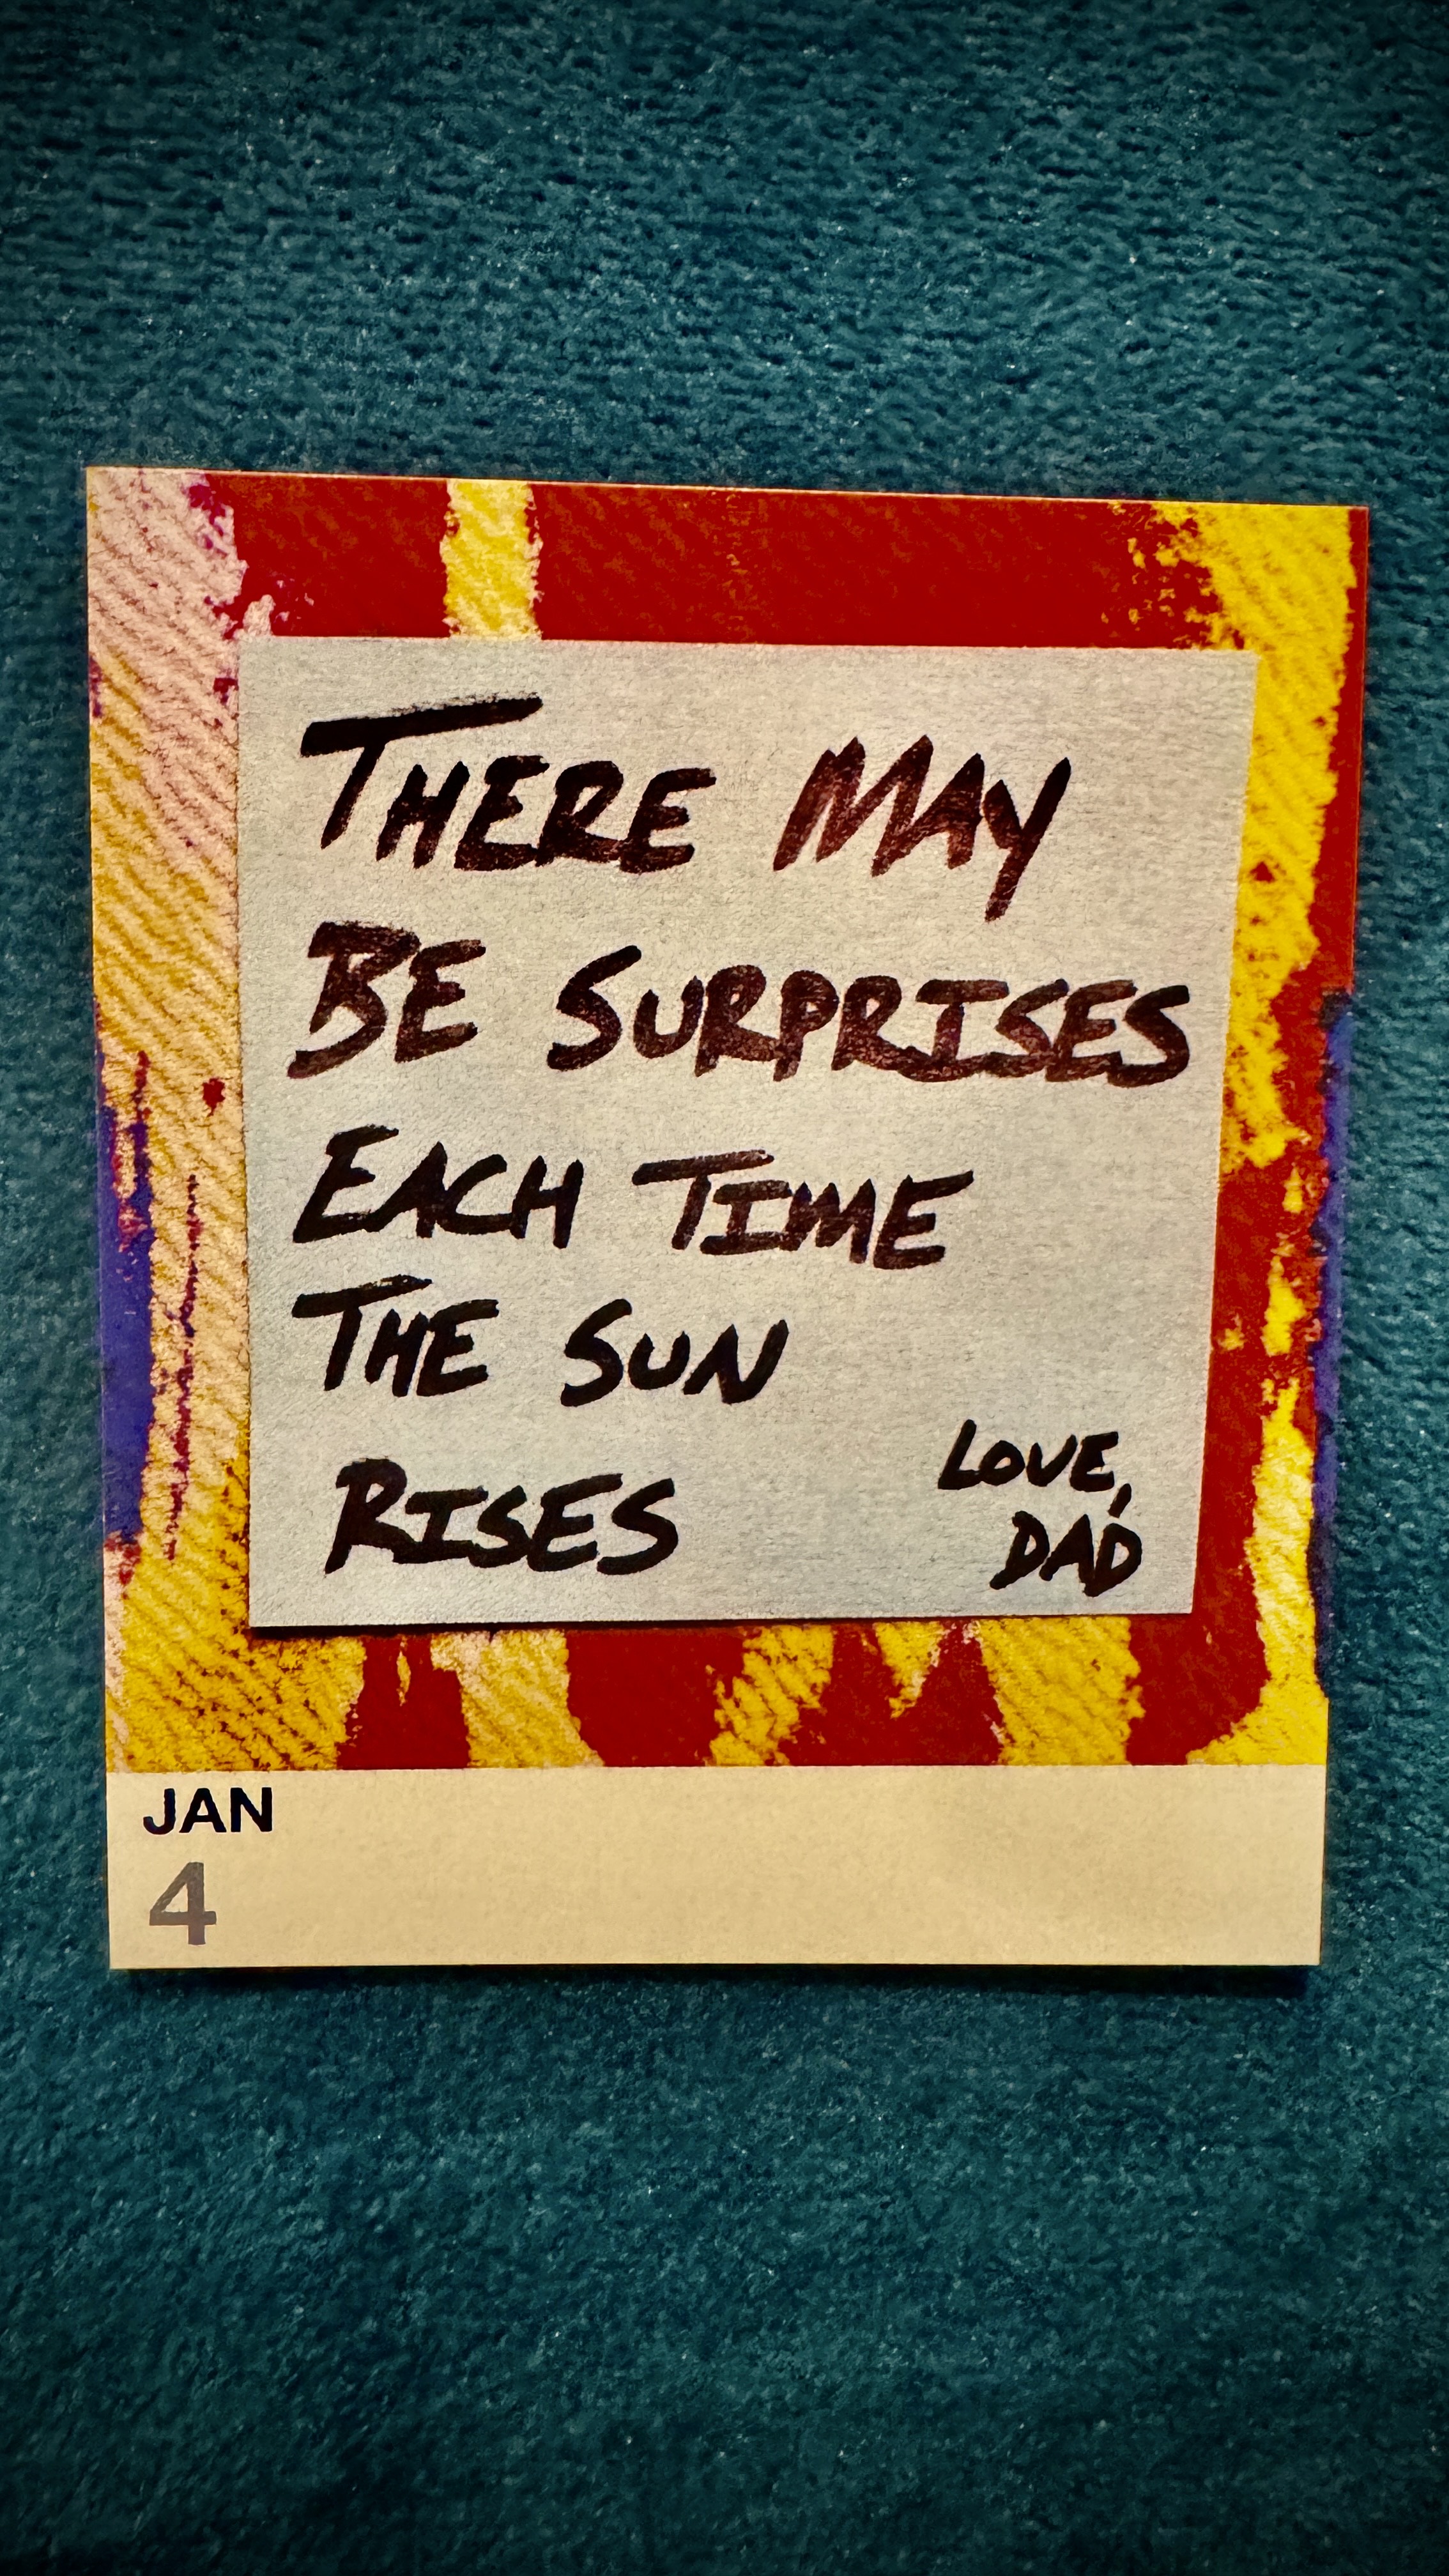 THERE MAY
BE SURPRISES
EACH TIME
THE SUN
RISES
LOVE,
DAD
JAN
4